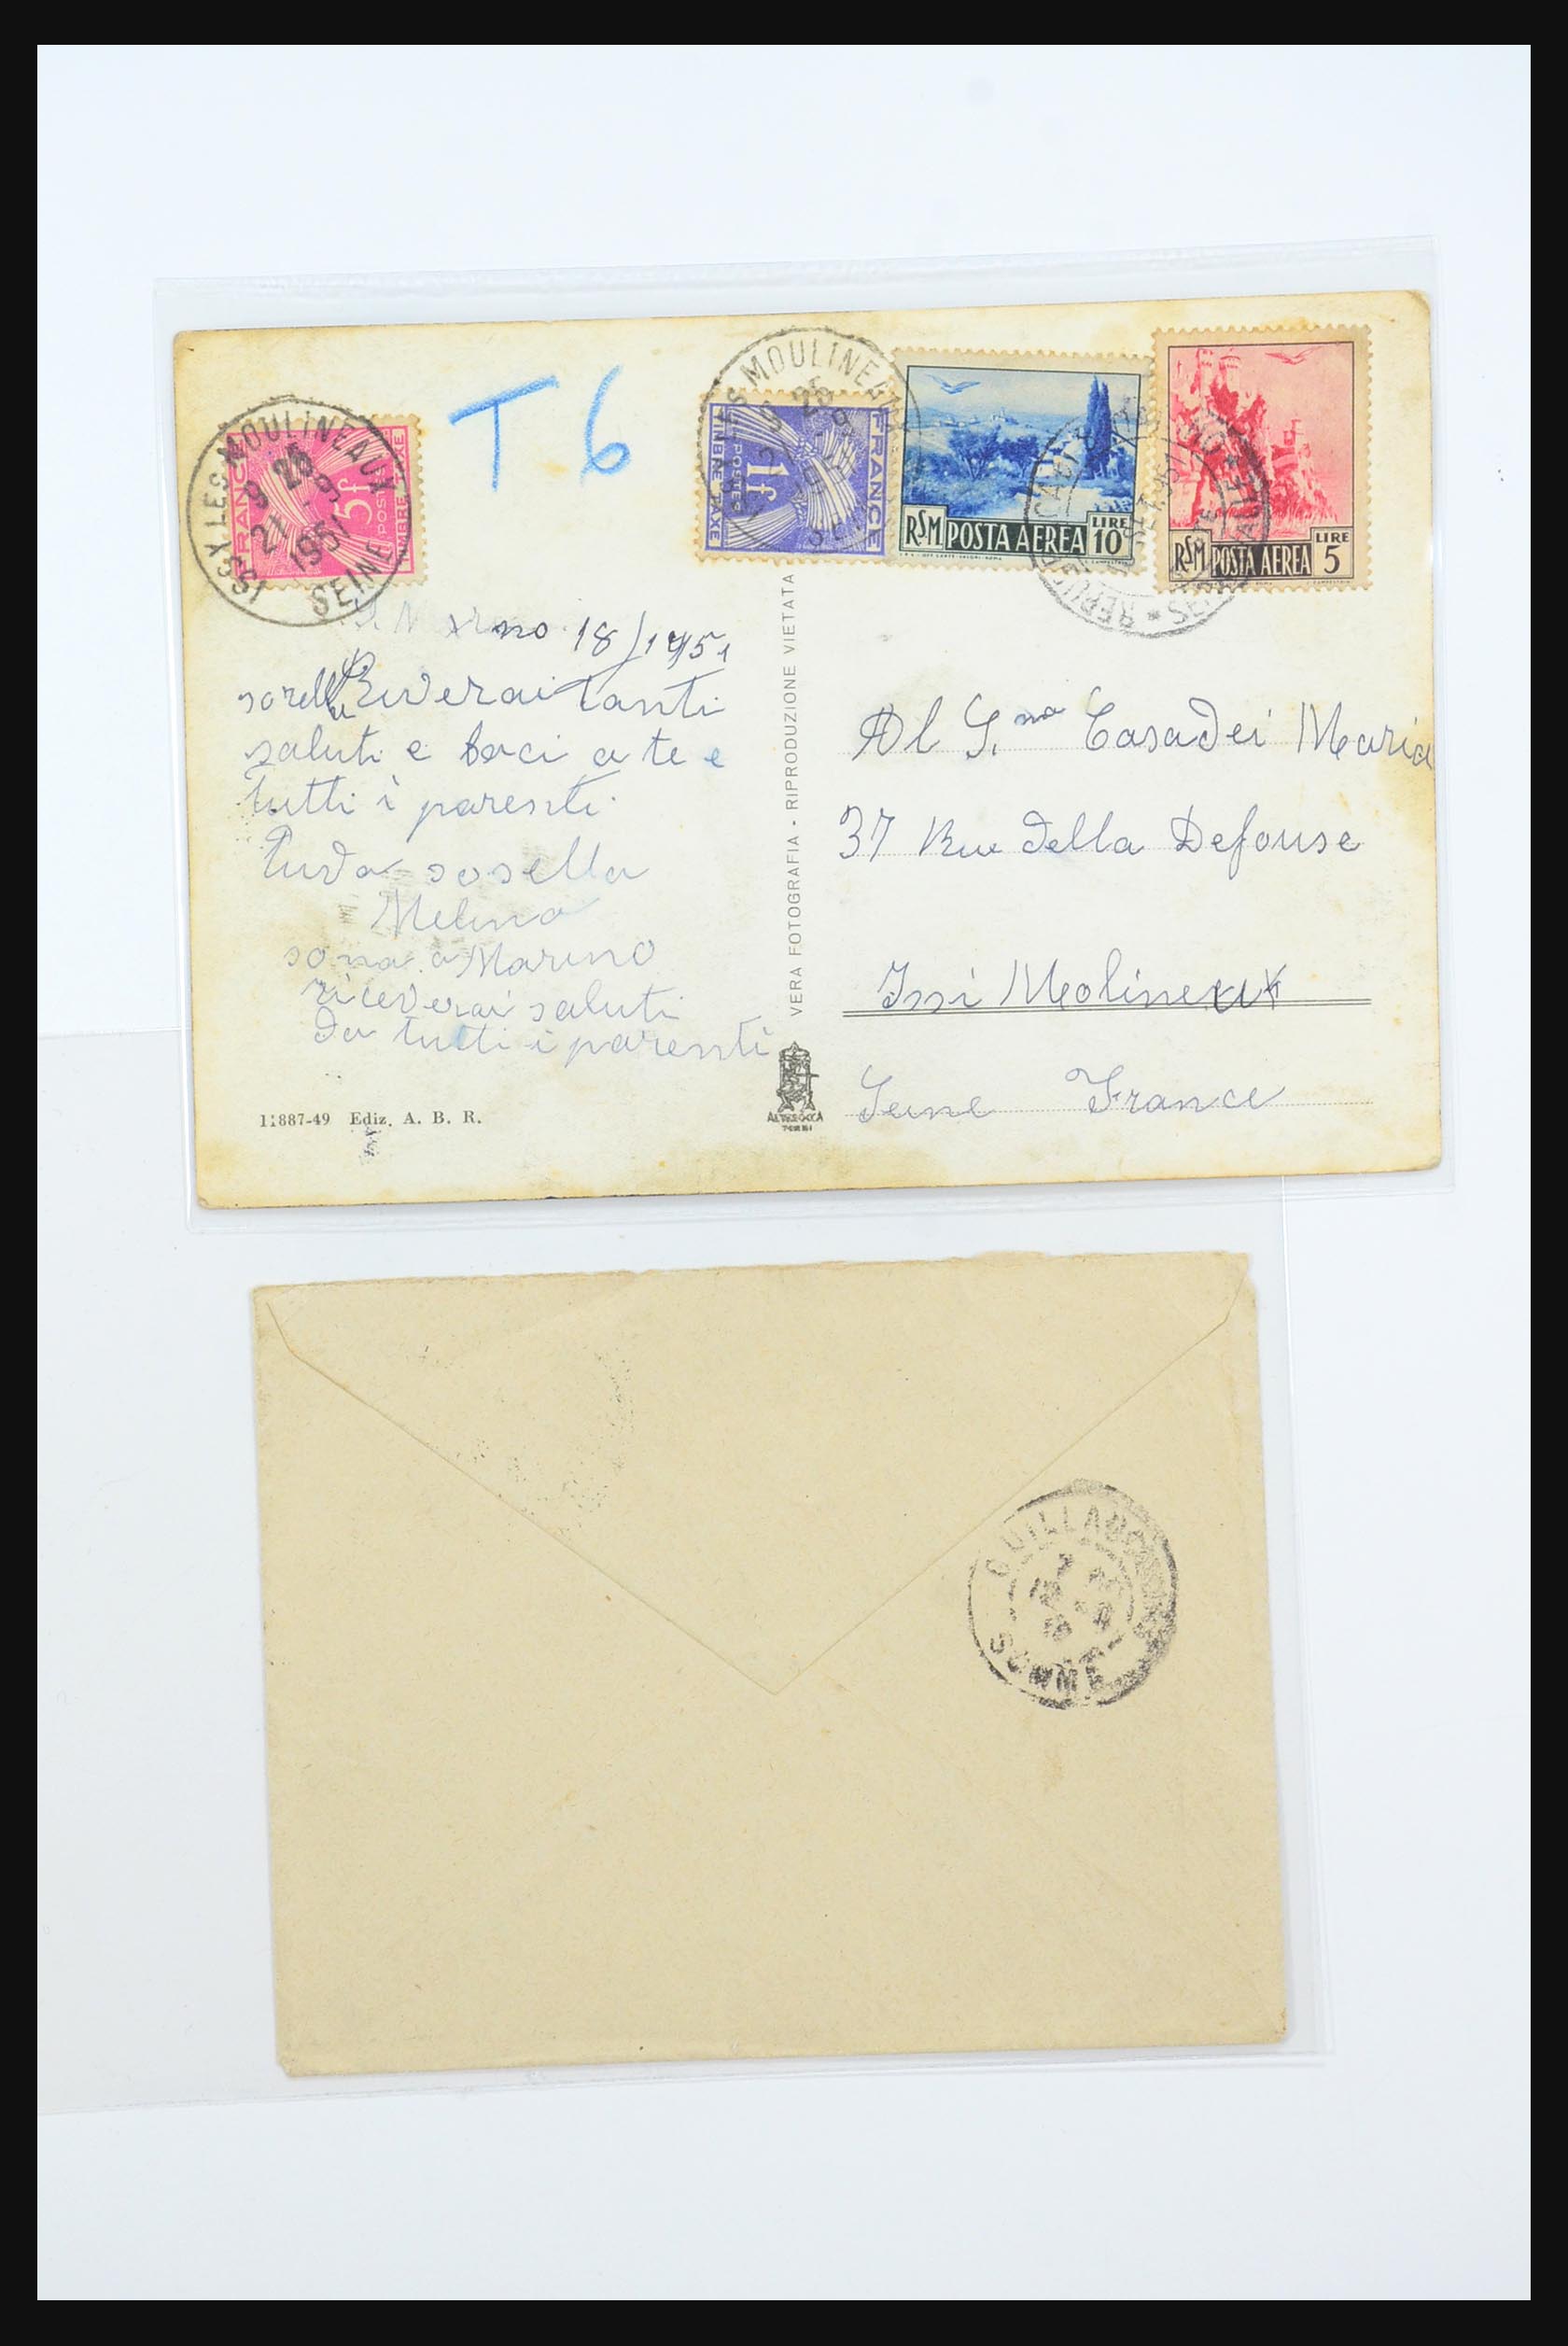 ISSY LES MOULINEAUX
9 25
21 -9
1951
SEINE
FRANCE
5f
POSTES
TIMBRE TAXE
T 6
LES MOULINEAUX
9 25
FRANCE
1f
POSTES
TIMBRE TAXE
RSM POSTA AEREA LIRE 10
RSM POSTA AEREA LIRE 5
18/1951
sorella Riverai tanti
saluti e baci a te e
tutti i parenti
sosella
Melina
Marino
riceverai saluti
Da tutti i parenti
11887-49 Ediz. A. B. R.
VERA FOTOGRAFIA - RIPRODUZIONE VIETATA
ALTEROCCA
TERNI
Al S.na Casadei Maria
37 Rue della Defouse
Issi Molineux
Seine France
GUILLAUMES